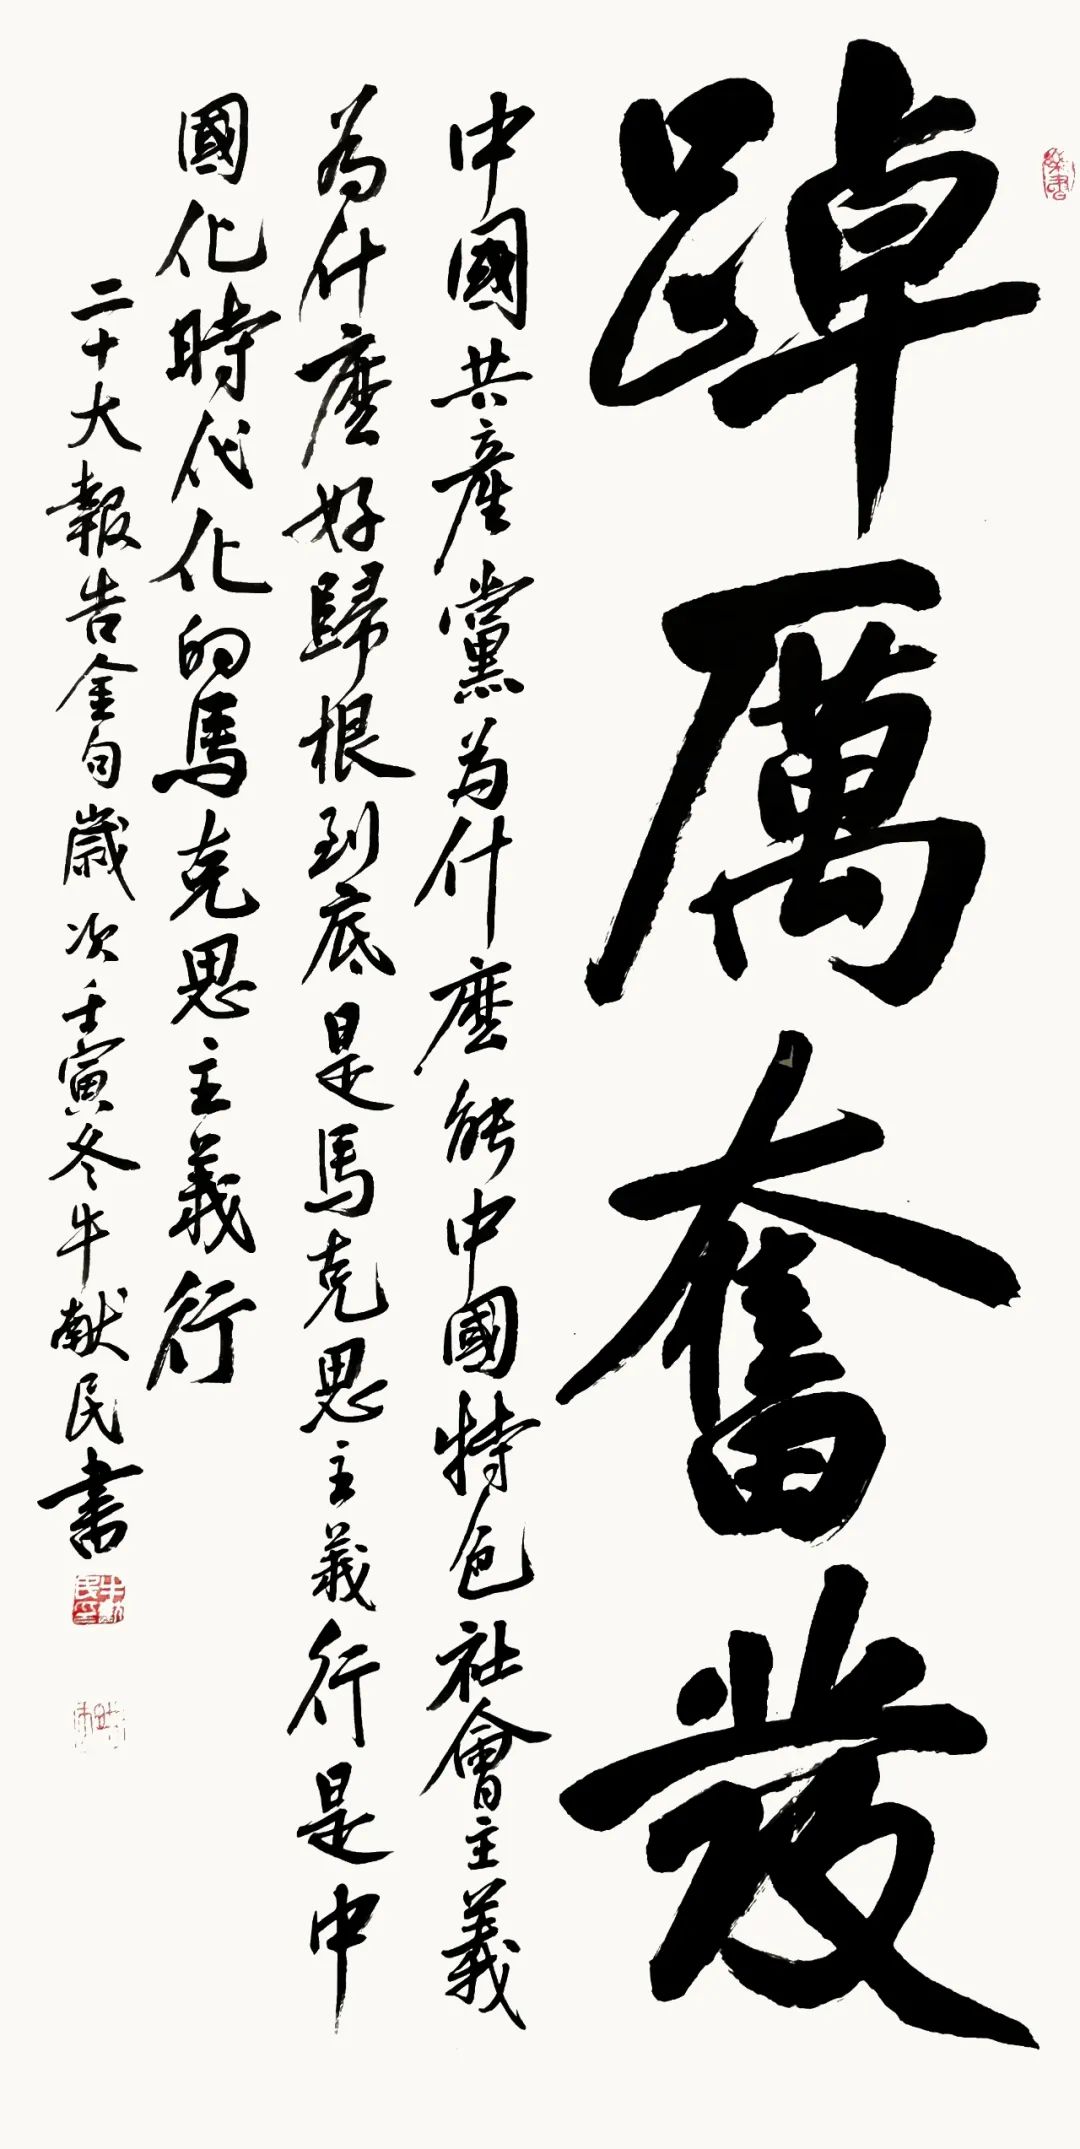 踔厲奮發
中國共產黨為什麼能中國特色社會主義
為什麼好歸根到底是馬克思主義行是中
國化時代化的馬克思主義行
二十大報告金句歲次壬寅冬牛献民書